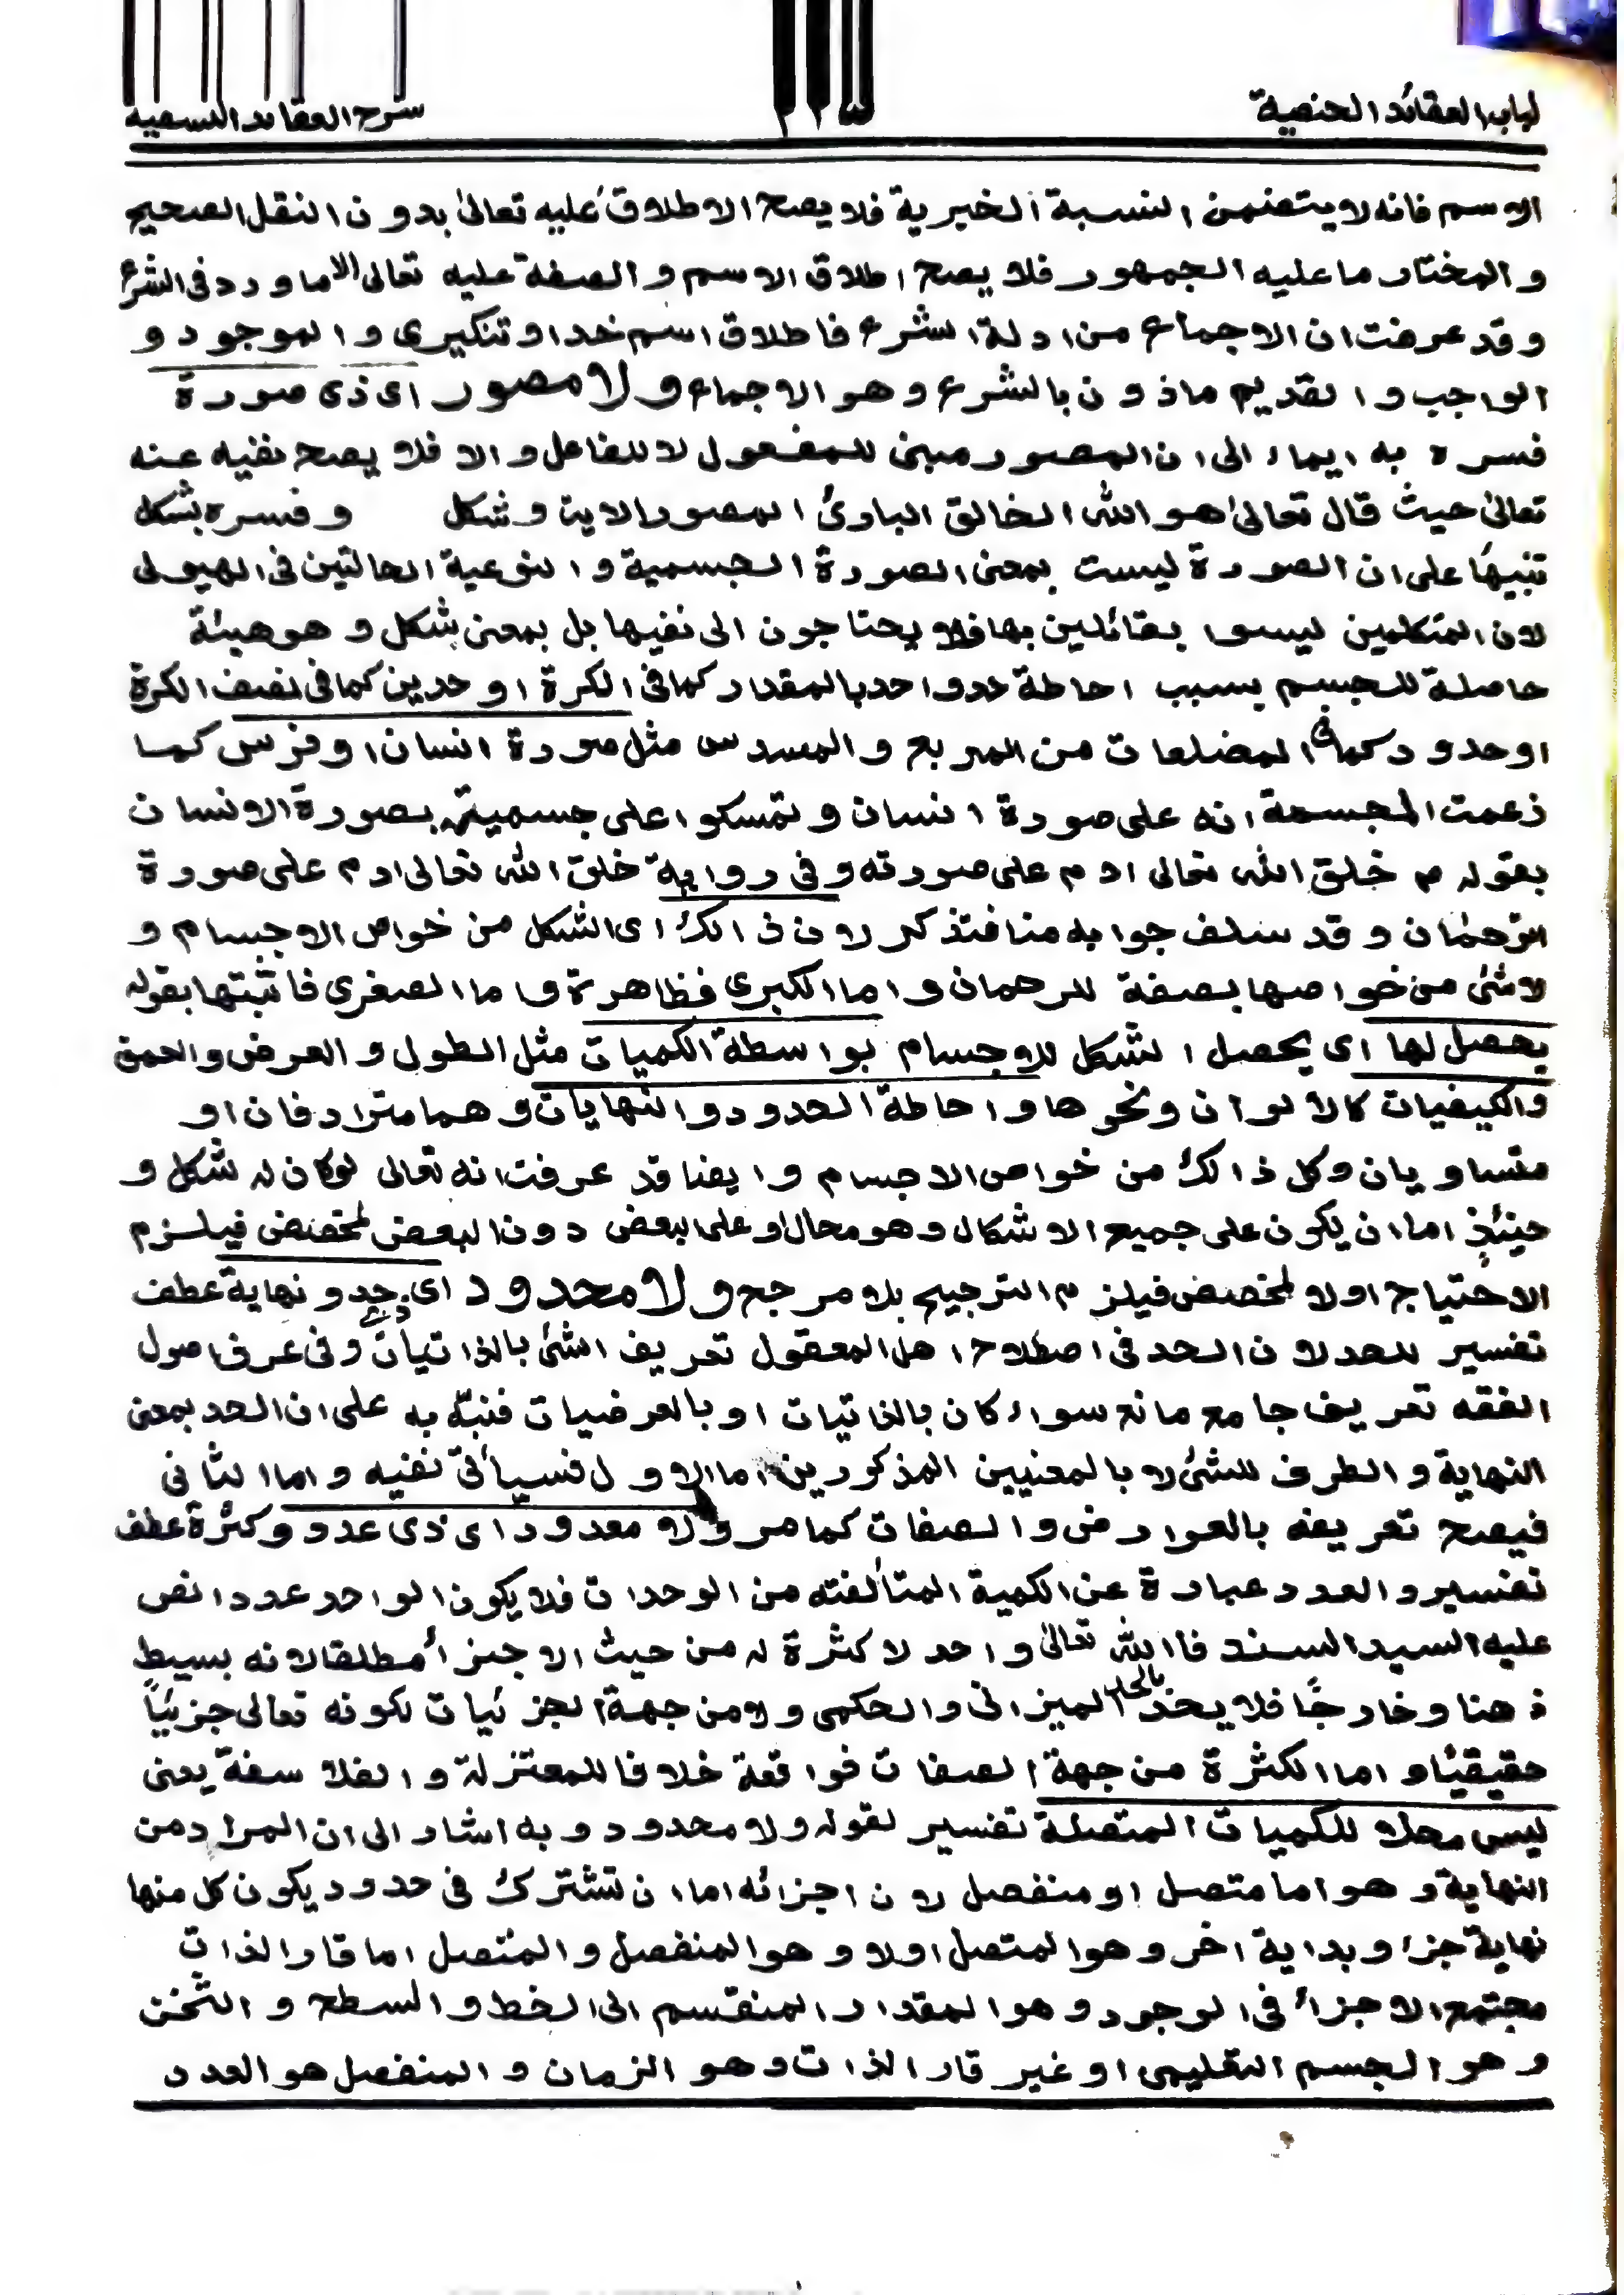 لباب العقائد الحنصية
شرح العقائد النسفية
الاسم فانه لا يتضمن النسبة الخبرية فلا يصح الاطلاق عليه تعالىٰ بدون النقل الصحيح
والمختار ما عليه الجمهور فلا يصح اطلاق الاسم والصفة عليه تعالى الا ما ورد فى الشرع
وقد عرفت ان الاجماع من ادلة الشرع فاطلاق اسم خدا و تنكيرى والموجود و
الواجب والقديم ماذون بالشرع وهو الاجماع ولا مصور اى ذى صورة
فسره به ايماء الى ان المصور مبنى للمفعول لا للفاعل والا فلا يصح نفيه عنه
تعالىٰ حيث قال تعالىٰ هو الله الخالق البارئ المصور الاية وشكل وفسره بشكل
تنبيهًا على ان الصورة ليست بمعنى الصورة الجسمية والنوعية الحالتين فى الهيولى
لان المتكلمين ليسوا بقائلين بها فلا يحتاجون الى نفيها بل بمعنى شكل وهو هيئة
حاصلة للجسم بسبب احاطة حد واحد بالمقدار كما فى الكرة او حدين كما فى نصف الكرة
او حدود كما فى المضلعات من المربع والمسدس مثل صورة انسان او فرس كما
زعمت المجسمة انه على صورة انسان وتمسكوا على جسميته بصورة الانسان
بقوله م خلق الله تعالى ادم على صورته وفى رواية خلق الله تعالى ادم على صورة
الرحمٰن وقد سلف جوابه منا فتذكر لان ذالك اى الشكل من خواص الاجسام و
لا شئ من خواصها بصفة للرحمان واما الكبرى فظاهرة واما الصغرى فاثبتها بقوله
يحصل لها اى يحصل الشكل للاجسام بواسطة الكميات مثل الطول والعرض والعمق
والكيفيات كالالوان ونحوها واحاطة الحدود والنهايات وهما مترادفان او
متساويان وكل ذالك من خواص الاجسام وايضا قد عرفت انه تعالى لوكان له شكل و
حينئذٍ اما ان يكون على جميع الاشكال وهو محال او على البعض دون البعض لمخصص فيلزم
الاحتياج اولا لمخصص فيلزم الترجيح بلا مرجح ولا محدود اى ذى حد ونهاية عطف
تفسير للحد لان الحد فى اصطلاح اهل المعقول تعريف الشئ بالذاتيات وفى عرف اصول
الفقه تعريف جامع مانع سواء كان بالذاتيات او بالعرضيات فنبّه به على ان الحد بمعنى
النهاية والطرف للشئ لا بالمعنيين المذكورين اما الاول فسيأتى نفيه واما الثانى
فيصح تعريفه بالعوارض والصفات كما مر ولا معدود اى ذى عدد وكثرة عطف
تفسير والعدد عبارة عن الكمية المتألفته من الوحدات فلا يكون الواحد عددا نص
عليه السيد السند فاالله تعالىٰ واحد لا كثرة له من حيث الاجزأ مطلقا لانه بسيط
ذهنا وخارجًا فلا يحد بالحد الميزانى والحكمى ولا من جهة الجزئيات لكونه تعالى جزئيًا
حقيقيًا واما الكثرة من جهة الصفات فواقعة خلافا للمعتزلة والفلاسفة يعنى
ليس محلا للكميات المتصلة تفسير لقوله ولا محدود وبه اشار الى ان المراد من
النهاية وهو اما متصل او منفصل لان اجزائه اما ان تشترك فى حدود يكون كل منها
نهاية جزء وبداية اخر وهو المتصل اولا وهو المنفصل والمتصل اما قار الذات
مجتمع الاجزاء فى الوجود وهو المقدار المنقسم الى الخط والسطح والثخن
وهو الجسم التعليمى او غير قار الذات وهو الزمان والمنفصل هو العدد